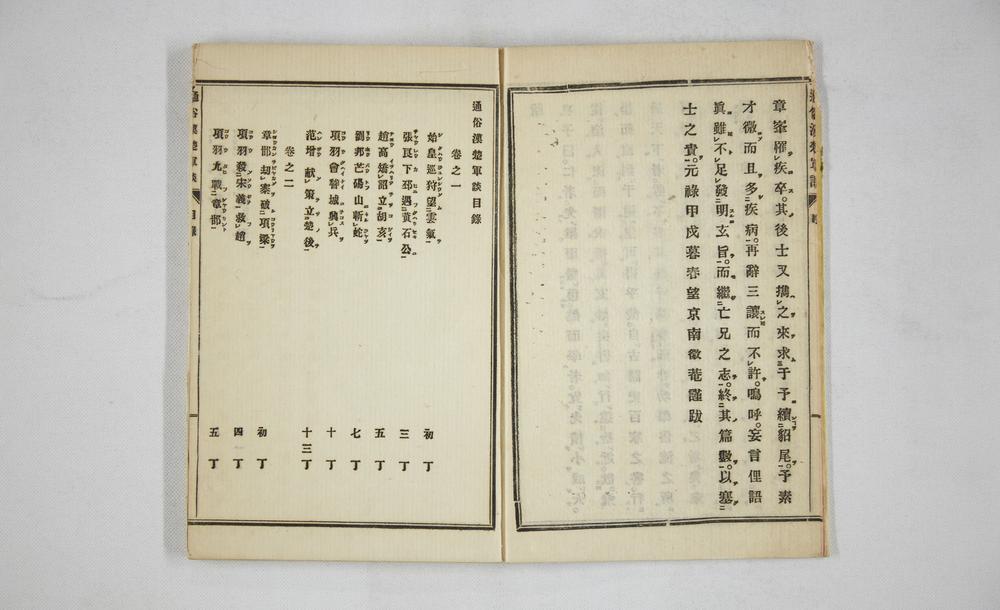 章峯罹疾卒。其後士又攜之來求于予續貂尾。予素
才微而且多疾病。再辭三讓而不許。嗚呼。妄言俚語
眞雖不足發明玄旨。而繼亡兄之志。終其篇數。以塞
士之責。元祿甲戌暮春望京南徽菴謹跋
通俗漢楚軍談目錄
卷之一
始皇巡狩望雲氣 初丁
張良下邳遇黃石公 三丁
趙高矯詔立胡亥 五丁
劉邦芒碭山斬蛇 七丁
項羽會稽城興兵 十丁
范增獻策立楚後 十三丁
卷之二
章邯劫秦破項梁 初丁
項羽殺宋義救趙 四丁
項羽九戰章邯 五丁
目錄